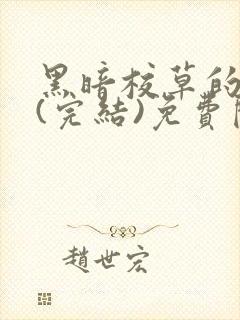 黑暗校草的
(完結)免費
趙世宏